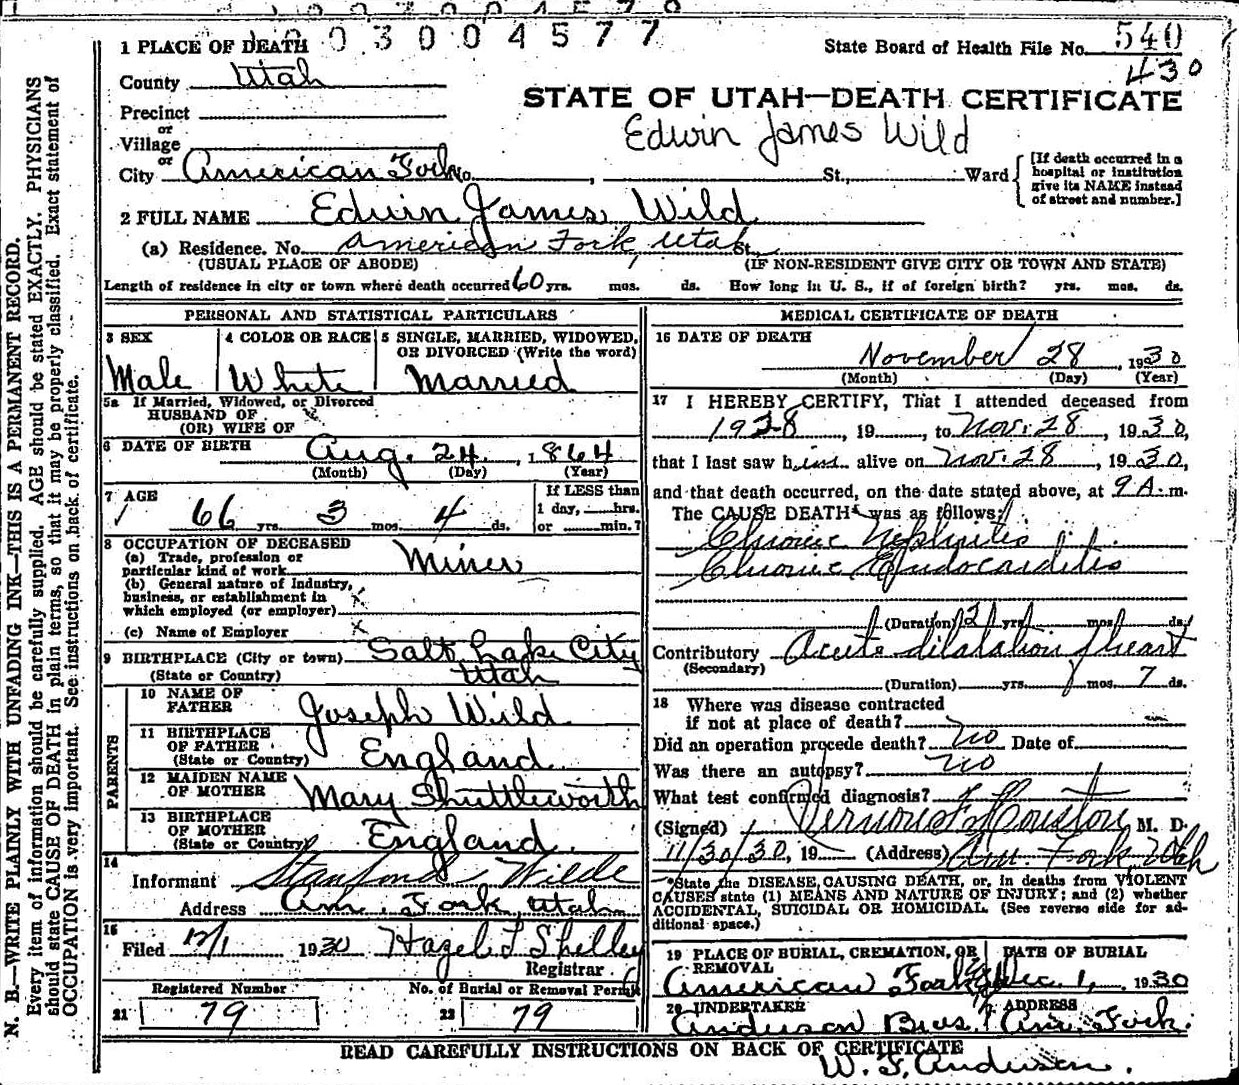 003004577
1 PLACE OF DEATH
State Board of Health File No. 540
430
County Utah
STATE OF UTAH—DEATH CERTIFICATE
Precinct
or
Village
Edwin James Wild
or
City American Fork No. , St., Ward
[If death occurred in a hospital or institution give its NAME instead of street and number.]
2 FULL NAME Edwin James Wild
(a) Residence. No. American Fork, Utah St.,
(USUAL PLACE OF ABODE) (IF NON-RESIDENT GIVE CITY OR TOWN AND STATE)
Length of residence in city or town where death occurred 60 yrs. mos. ds. How long in U. S., if of foreign birth? yrs. mos. ds.
PERSONAL AND STATISTICAL PARTICULARS
3 SEX
Male
4 COLOR OR RACE
White
5 SINGLE, MARRIED, WIDOWED, OR DIVORCED (Write the word)
Married
5a If Married, Widowed, or Divorced
HUSBAND OF
(OR) WIFE OF
6 DATE OF BIRTH Aug. 24, 1864
(Month) (Day) (Year)
7 AGE
66 yrs. 3 mos. 4 ds.
If LESS than
1 day, hrs.
or min.?
8 OCCUPATION OF DECEASED
(a) Trade, profession or
particular kind of work Miner
(b) General nature of Industry,
business, or establishment in
which employed (or employer)
(c) Name of Employer
9 BIRTHPLACE (City or town) Salt Lake City
(State or Country) Utah
PARENTS
10 NAME OF
FATHER Joseph Wild
11 BIRTHPLACE
OF FATHER
(State or Country) England
12 MAIDEN NAME
OF MOTHER Mary Shuttleworth
13 BIRTHPLACE
OF MOTHER
(State or Country) England
14
Informant Stanford Wilde
Address Am. Fork, Utah
15
Filed 12/1 1930 Hazel L Shelley
Registrar.
Registered Number
21 79
No. of Burial or Removal Permit
22 79
MEDICAL CERTIFICATE OF DEATH
16 DATE OF DEATH
November 28, 1930
(Month) (Day) (Year)
17 I HEREBY CERTIFY, That I attended deceased from
1928, 19 , to Nov. 28, 1930,
that I last saw him alive on Nov. 28, 1930,
and that death occurred, on the date stated above, at 9 A. m.
The CAUSE DEATH* was as follows:
Chronic Nephritis
Chronic Endocarditis
(Duration) 2 yrs. mos. ds.
Contributory Acute dilatation of heart
(Secondary)
(Duration) yrs. mos. 7 ds.
18 Where was disease contracted
if not at place of death? no
Did an operation precede death? no Date of
Was there an autopsy? no
What test confirmed diagnosis?
(Signed) Vernon F. Houston M. D.
11/30/30, 19 (Address) Am. Fork Utah
*State the DISEASE CAUSING DEATH, or, in deaths from VIOLENT
CAUSES state (1) MEANS AND NATURE OF INJURY; and (2) whether
ACCIDENTAL, SUICIDAL OR HOMICIDAL. (See reverse side for ad-
ditional space.)
19 PLACE OF BURIAL, CREMATION, OR
REMOVAL
American Fork
DATE OF BURIAL
Dec. 1, 1930
20 UNDERTAKER
Anderson Bros.
ADDRESS
Am. Fork.
READ CAREFULLY INSTRUCTIONS ON BACK OF CERTIFICATE
W. F. Anderson.
N. B.—WRITE PLAINLY WITH UNFADING INK—THIS IS A PERMANENT RECORD.
Every item of information should be carefully supplied. AGE should be stated EXACTLY. PHYSICIANS
should state CAUSE OF DEATH in plain terms, so that it may be properly classified. Exact statement of
OCCUPATION is very important. See instructions on back of certificate.